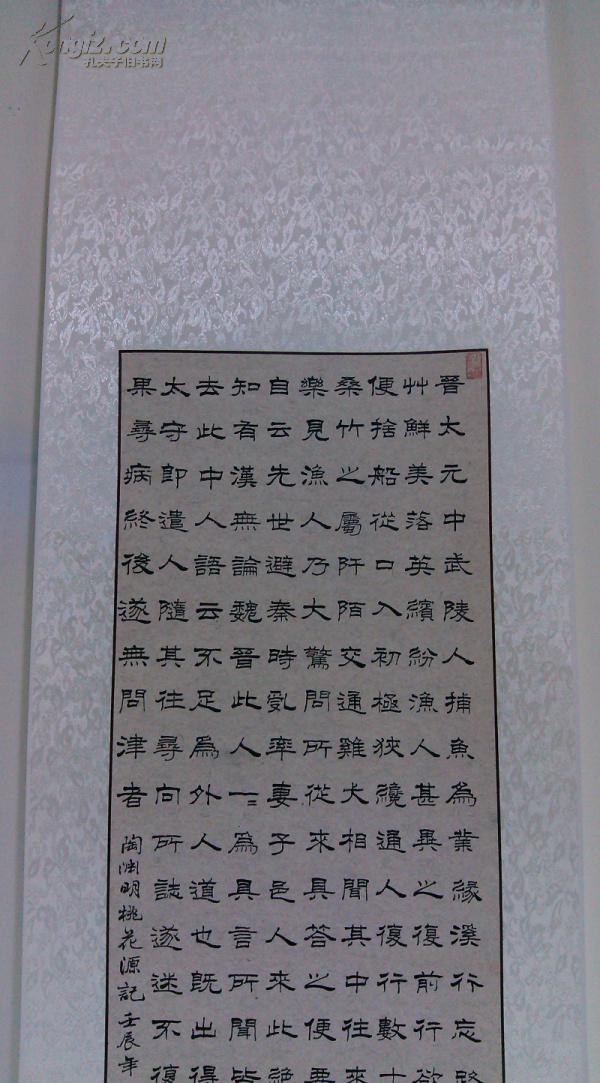 Kongfz.com
孔夫子旧书网
晉太元中武陵人捕魚為業緣溪行忘路
艸鮮美落英繽紛漁人甚異之復前行欲
便捨船從口入初極狹纔通人復行數十
桑竹之屬阡陌交通雞犬相聞其中往來
樂見漁人乃大驚問所從來具答之便要
自云先世避秦時亂率妻子邑人來此絕
知有漢無論魏晉此人一一為具言所聞皆
去此中人語云不足為外人道也既出得
太守即遣人隨其往尋向所誌遂迷不復
果尋病終後遂無問津者 陶淵明桃花源記 壬辰年